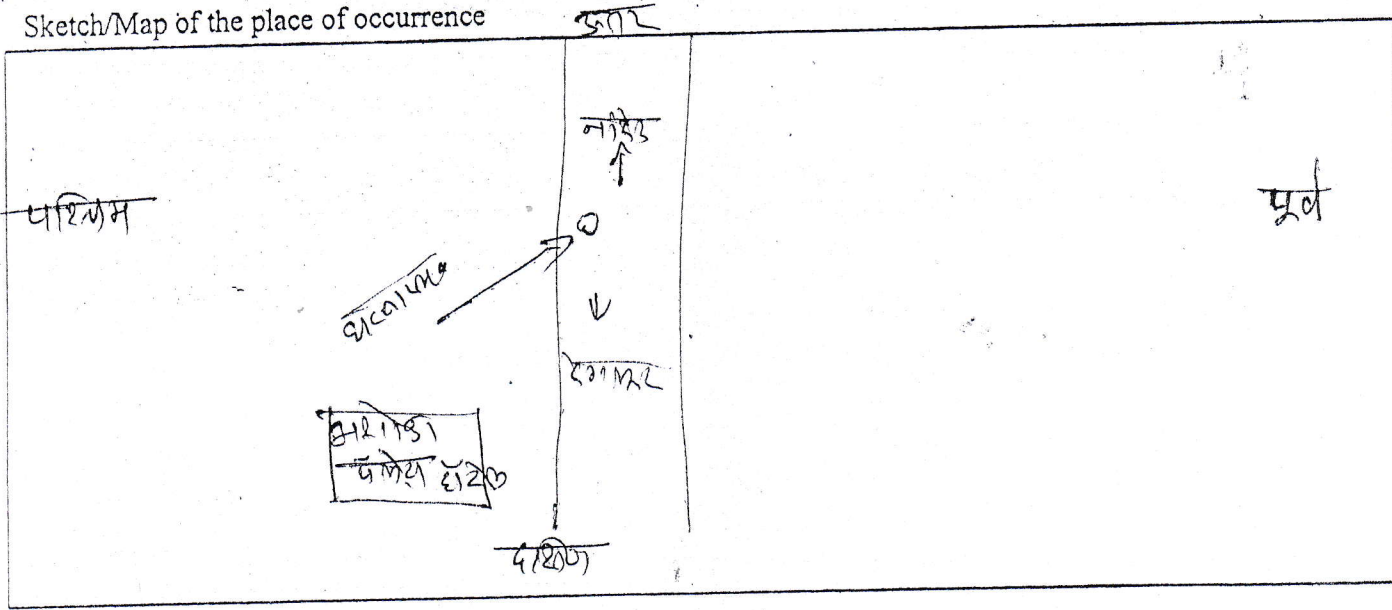 Sketch/Map of the place of occurrence
उत्तर
नांदेड
पश्चिम
पूर्व
देगलूर
अशोका
पॅलेस हॉटेल
दक्षिण